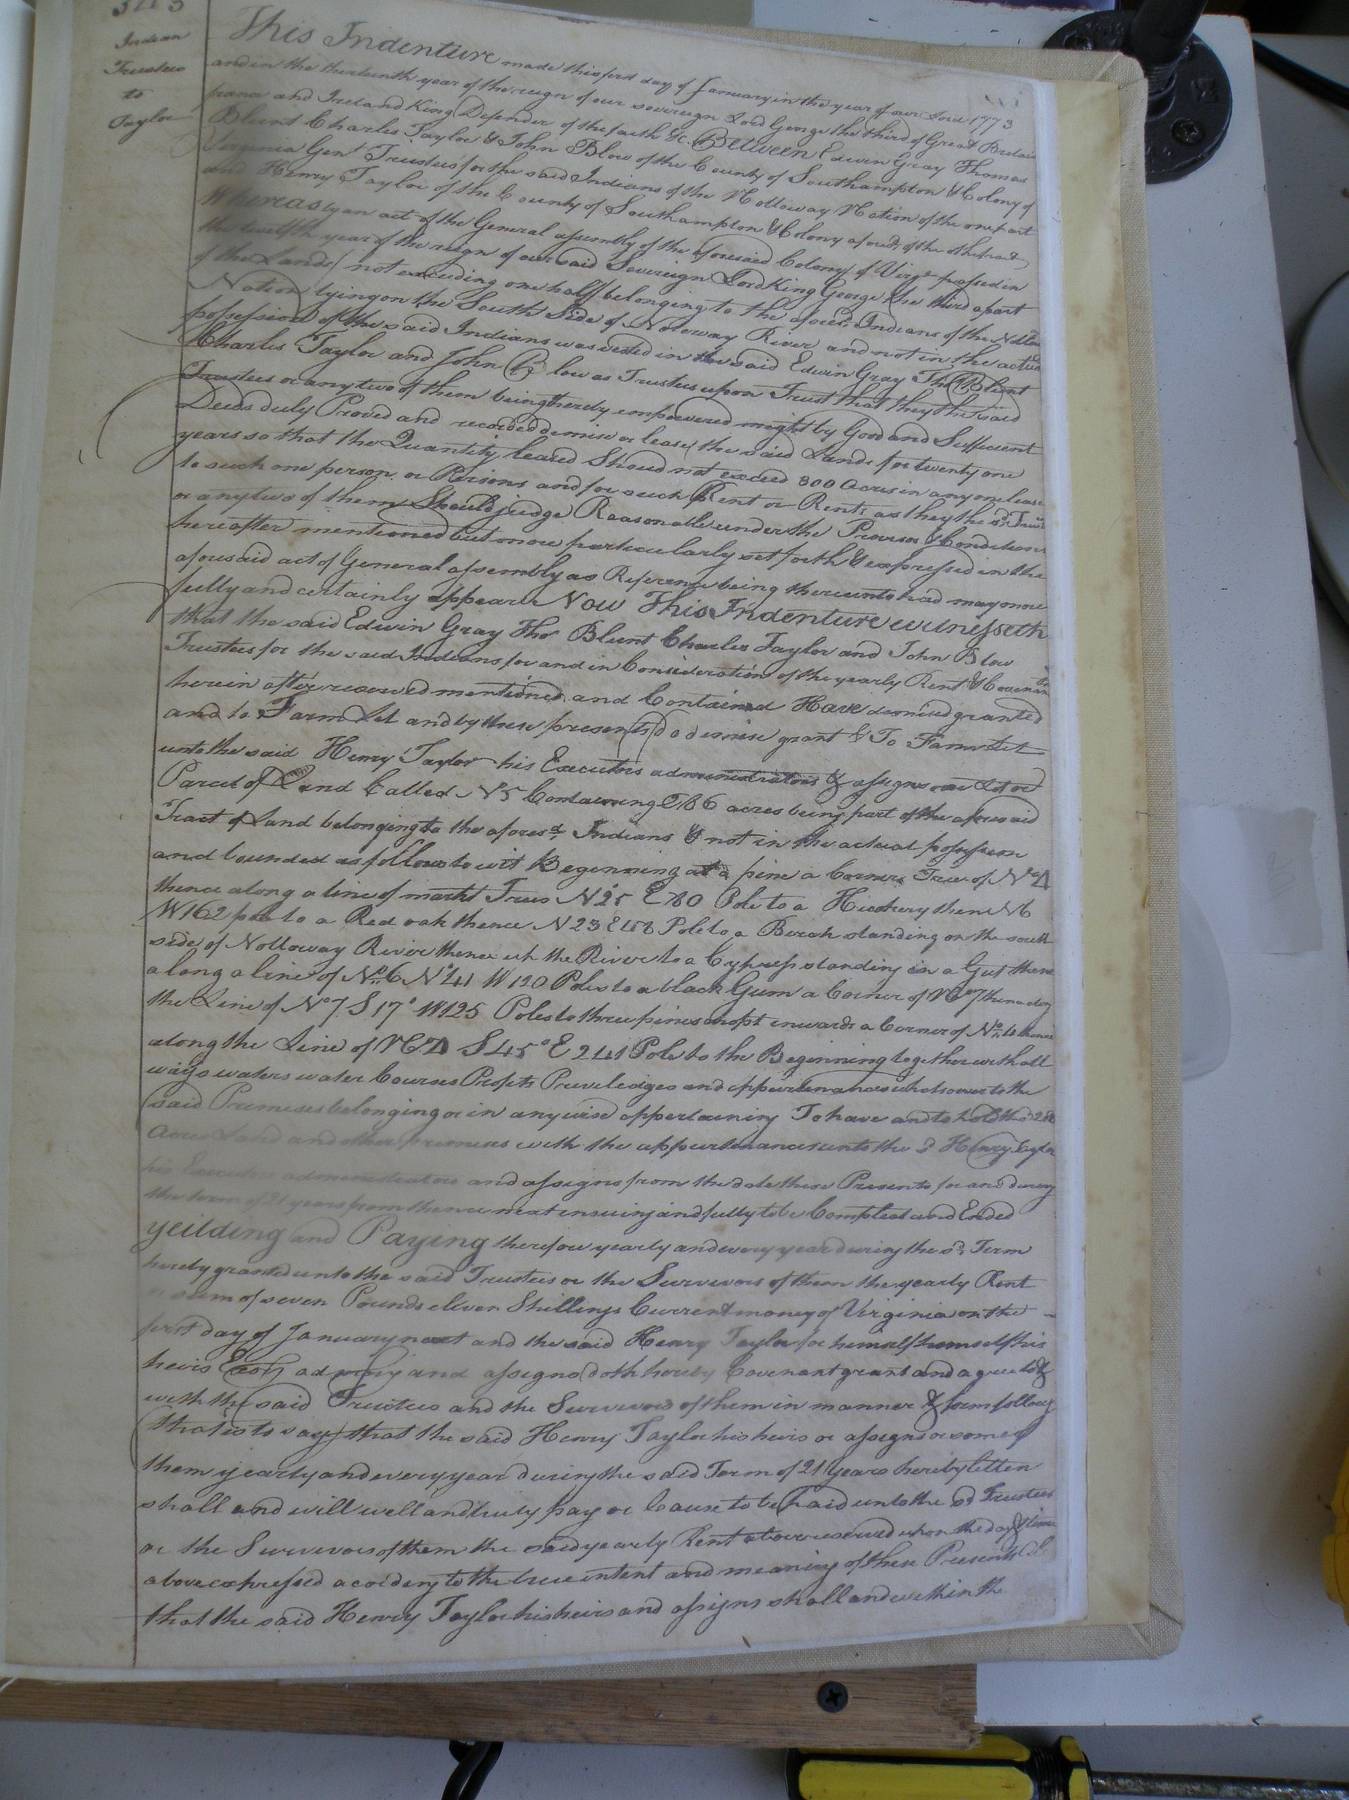 Indian
Trustees
to
Taylor
This Indenture made this first day of January in the year of our Lord 1773
and in the thirteenth year of the reign of our sovereign Lord George the third of Great Britain
france and Ireland King Defender of the faith &c. Between Edwin Gray Thomas
Blunt Charles Taylor & John Blow of the County of Southampton & Colony of
Virginia Gent Trustees for the said Indians of the Nottoway Nation of the one part
and Henry Taylor of the County of Southampton & Colony aforesd. of the other part
Whereas by an act of the General assembly of the aforesaid Colony of Virga passed in
the twelfth year of the reign of our said Sovereign Lord King George the third a part
of the Lands (not exceeding one half) belonging to the aforesd. Indians of the
Nation lying on the South Side of Notoway River and not in the actual
possession of the said Indians was vested in the said Edwin Gray Tho Blunt
Charles Taylor and John Blow as Trustees upon Trust that they the said
Trustees or any two of them being thereby empowered might by Good and Sufficient
Deeds duly Proved and recorded demise or lease the said Lands for twenty one
years so that the Quantity leased Should not exceed 300 Acres in any one lease
to such one person or Persons and for such Rent or Rents as they the sd. Trus
or any two of them Should judge Reasonable under the Provisos & Conditions
hereafter mentioned but more particularly set forth & expressed in the
aforesaid act of General assembly as Reference being thereunto had may more
fully and certainly appear Now This Indenture witnesseth
that the said Edwin Gray Tho Blunt Charles Taylor and John Blow
Trustees for the said Indians for and in Consideration of the yearly Rent & Covenan
herein after reserved mentioned and Contained Have demised granted
and to Farm Let and by these presents do demise grant & To Farm Let
unto the said Henry Taylor his Executors administrators & assigns one Lot or
Parcel of Land Called No 5 Containing 286 acres being part of the aforesaid
Tract of Land belonging to the aforesd. Indians & not in the actual possession
and bounded as follows to wit Beginning at a pine a Corner Tree of No 4
thence along a line of markt Trees N25 E 780 Pole to a Hickory then N6
W162 pole to a Red oak thence N 23 E 158 Pole to a Beech standing on the south
side of Nottoway River thence up the River to a Cypress standing in a Gut thence
along a line of No. 6 N 41 W 120 Poles to a black Gum a Corner of No 7 thence along
the Line of No 7 S 17° W125 Poles to three pines chopt inwards a Corner of No. 4 thence
along the Line of No 4 S 45° E 241 Pole to the Beginning together with all
ways waters water Courses Profits Priviledges and appurtenances whatsoever to the
said Premises belonging or in any wise appertaining To have and to hold the 286
Acres Land and other premises with the appurtenances unto the sd Henry Taylor
his Executors administrators and assigns from the date these Presents for and during
the term of 21 years from thence next insuing and fully to be Compleat and Ended
yeilding and Paying therefore yearly and every year during the sd. Term
hereby granted unto the said Trustees or the Survivors of them the yearly Rent
or sum of seven Pounds eleven Shillings Current money of Virginia on the
first day of January next and the said Henry Taylor for himself himself his
heirs Exors adm and assigns doth hereby Covenant grant and agree to &
with the said Trustees and the Survivors of them in manner & form follows
(that is to say) that the said Henry Taylor his heirs or assigns or some of
them yearly and every year during the said Term of 21 years hereby letten
shall and will well and truly pay or Cause to be paid unto the sd Trustees
or the Survivors of them the said yearly Rent above reserved upon the day & time
above expressed according to the true intent and meaning of these Presents &
that the said Henry Taylor his heirs and assigns shall and within the